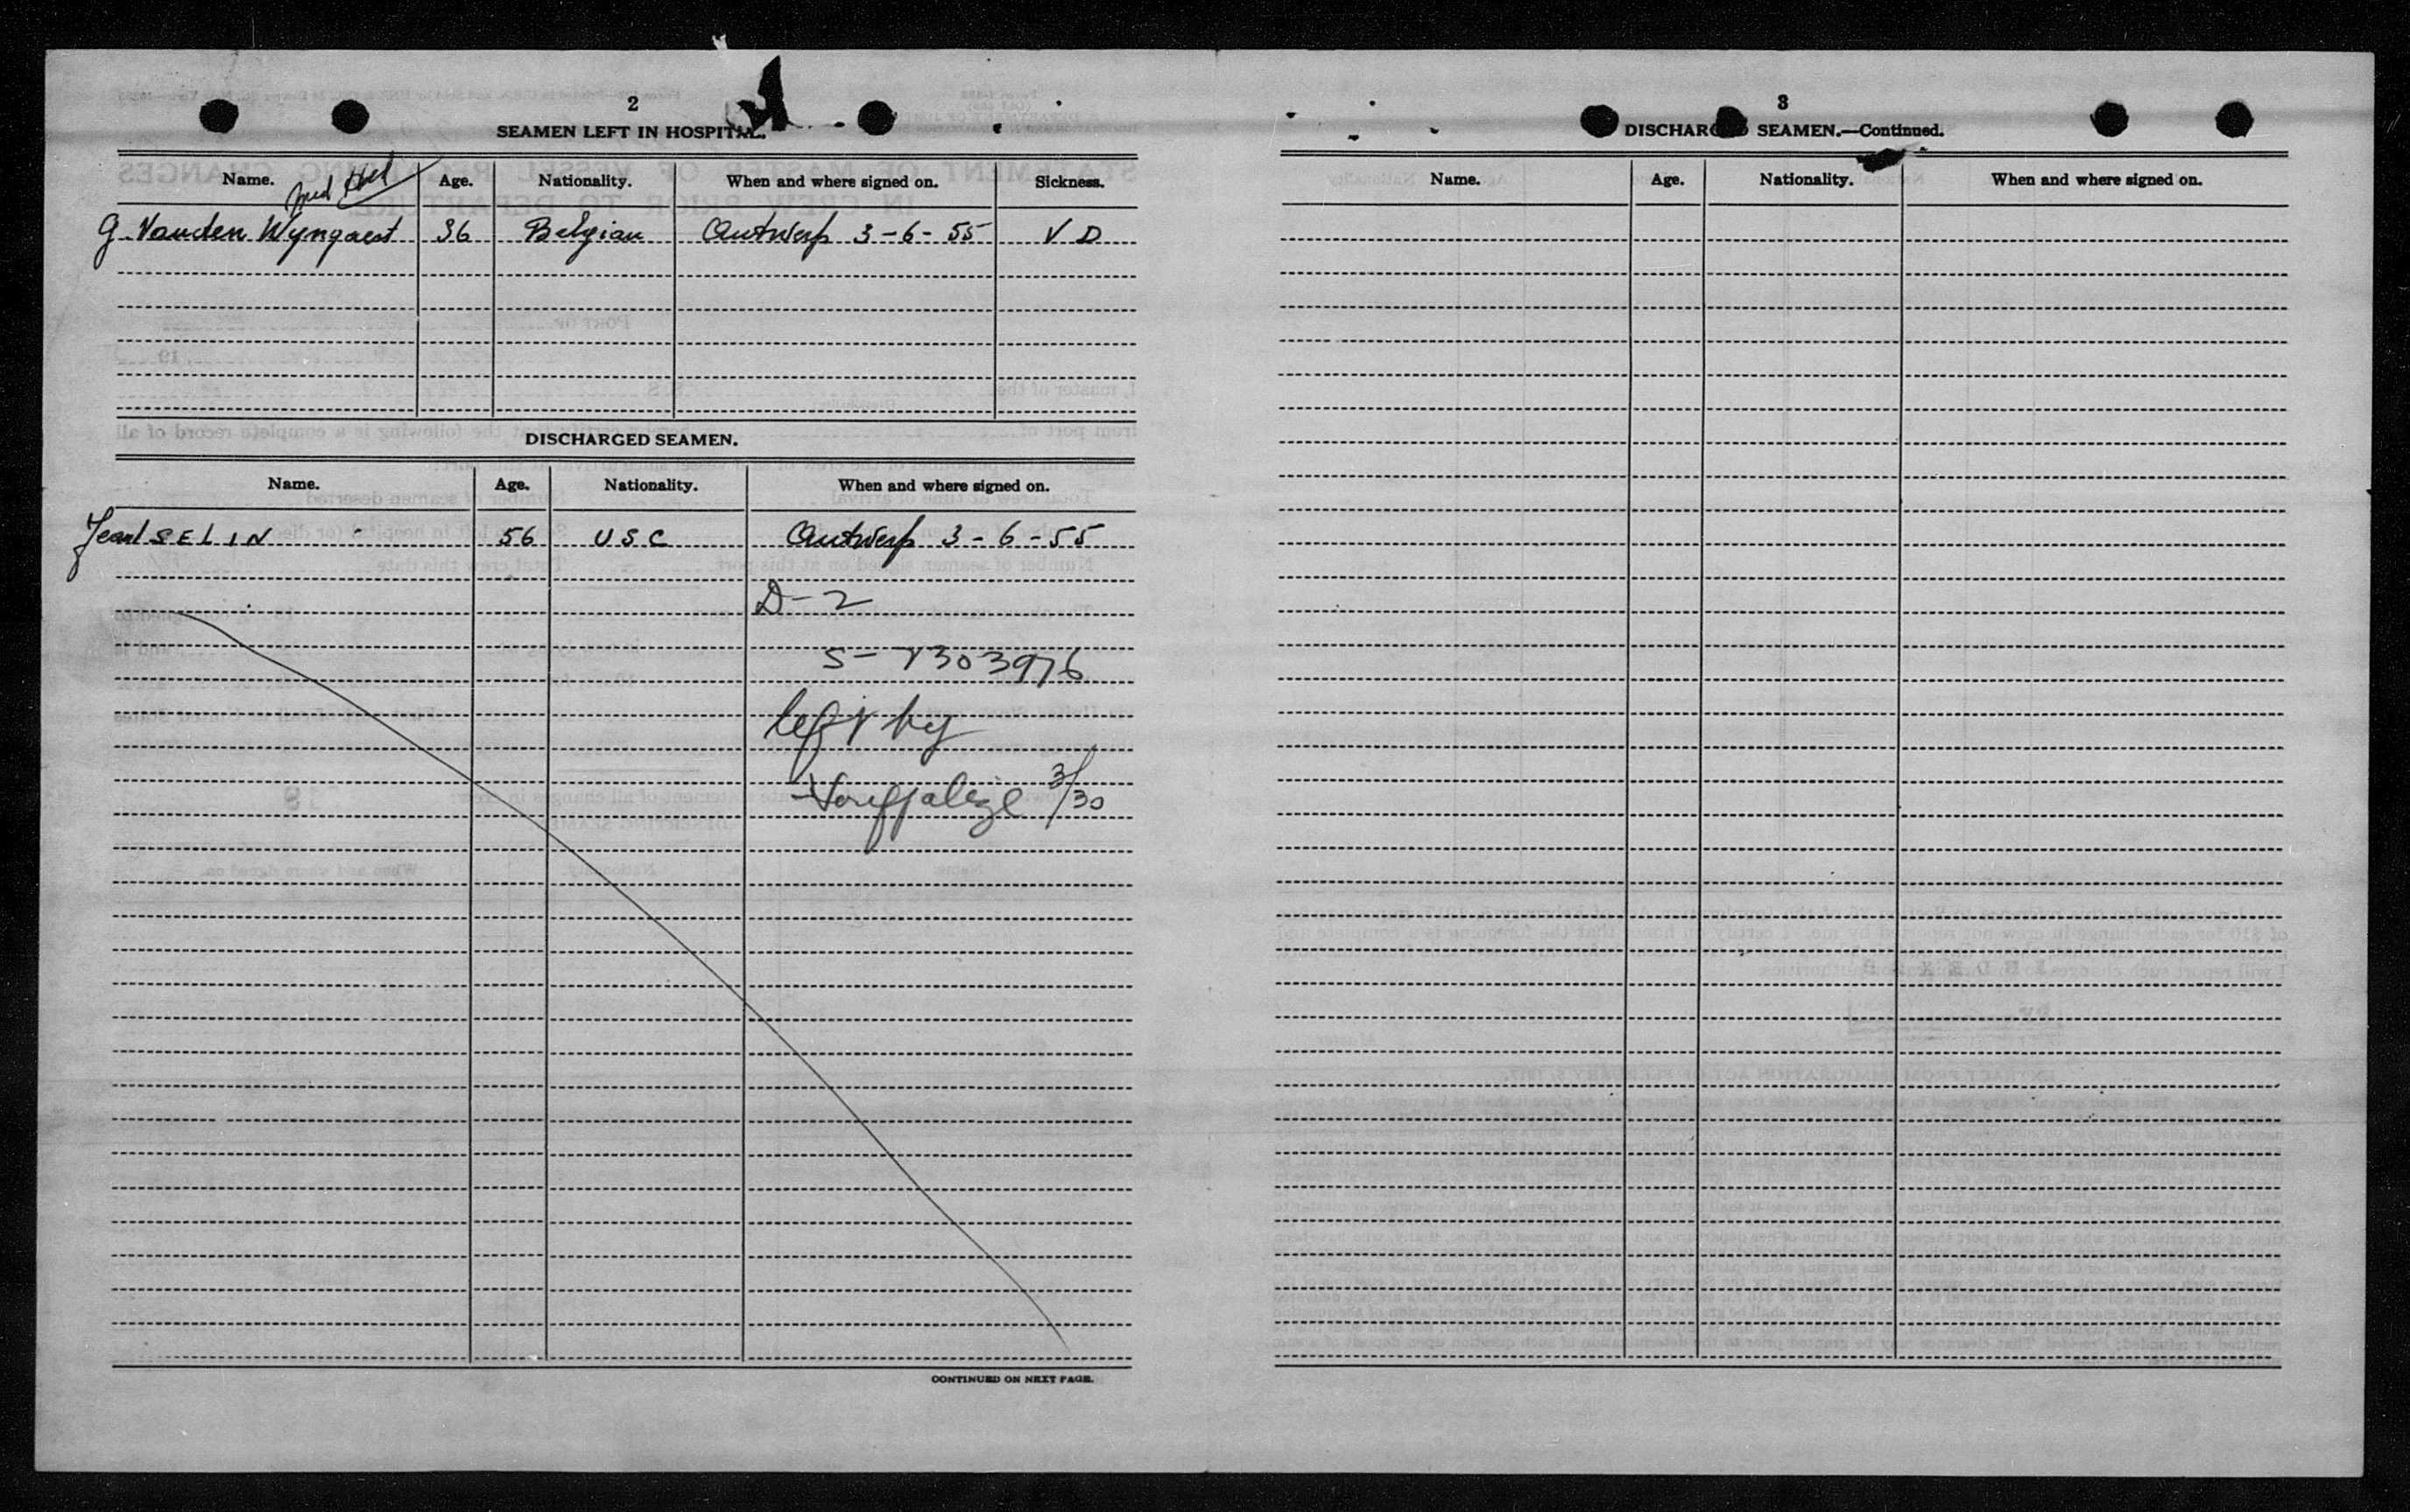 2
SEAMEN LEFT IN HOSPITAL.
Name. Age. Nationality. When and where signed on. Sickness.
G. Vanden Wyngaert 36 Belgian Antwerp 3-6-55 V D
DISCHARGED SEAMEN.
Name. Age. Nationality. When and where signed on.
Jean SELIN 56 USC Antwerp 3-6-55
D-2
left by
3/30
CONTINUED ON NEXT PAGE.
3
DISCHARGED SEAMEN.—Continued.
Name. Age. Nationality. When and where signed on.